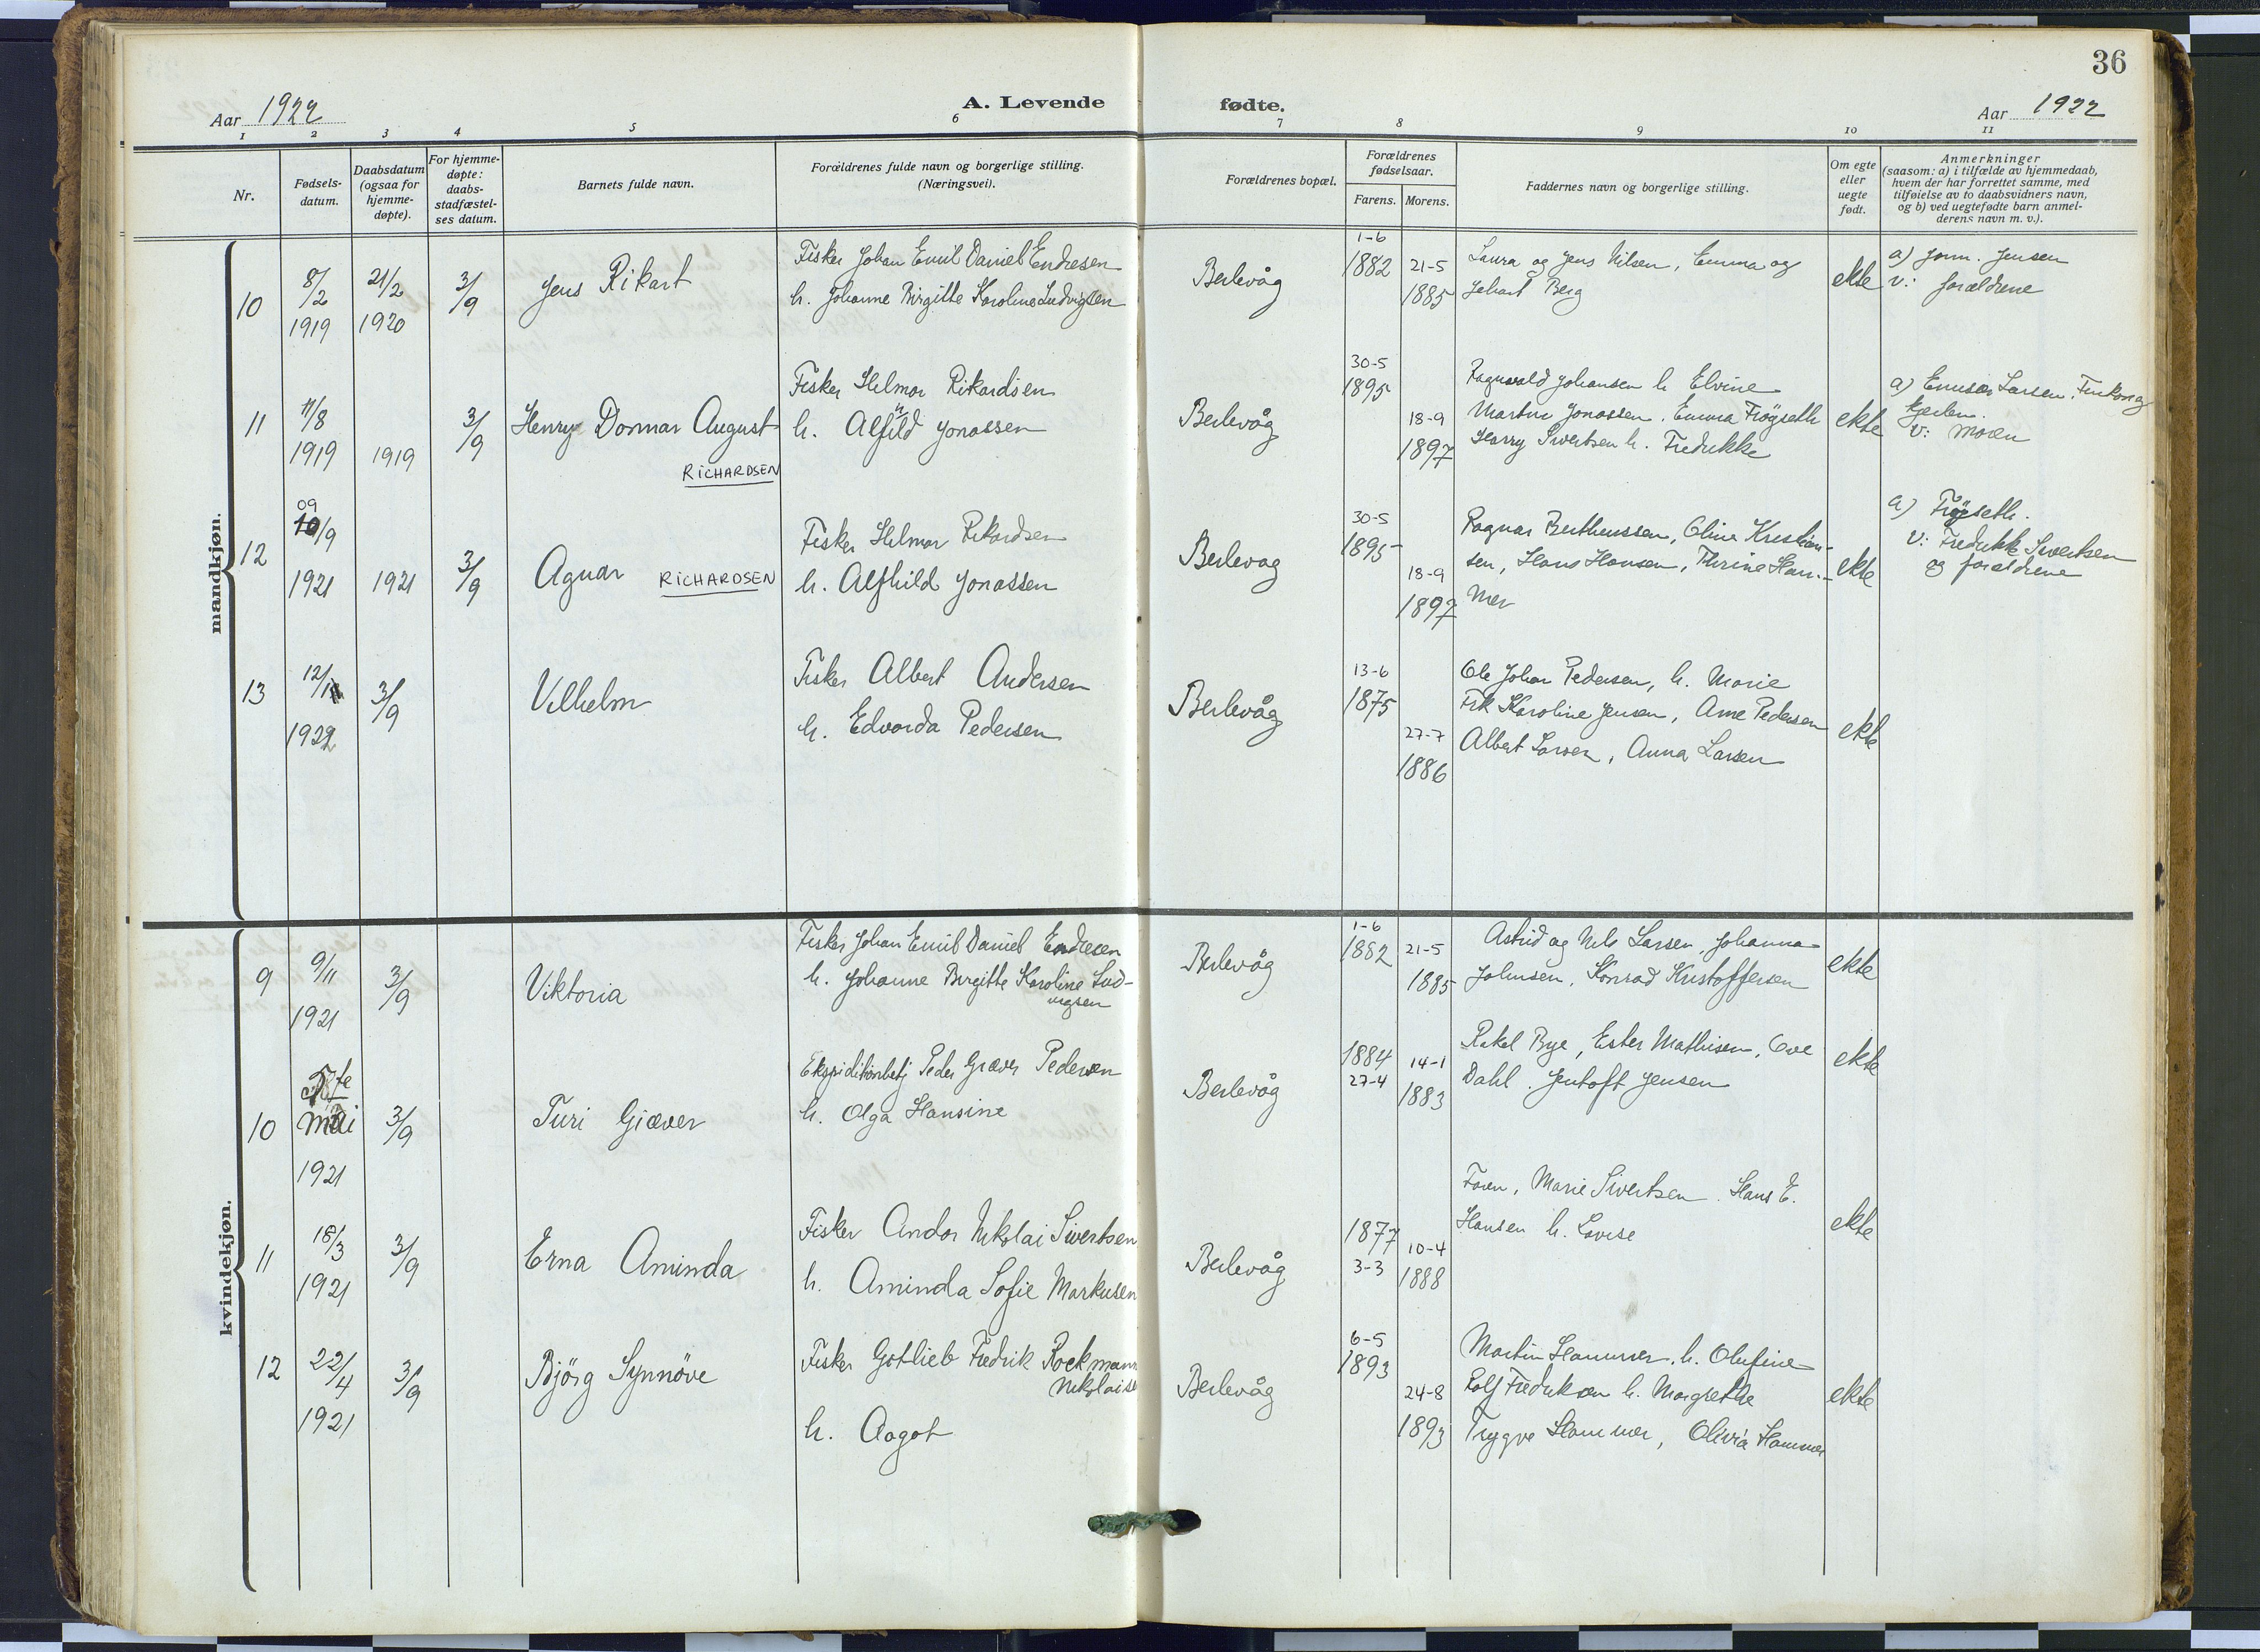 36
Aar 1922
A. Levende fødte.
Aar 1922
1 2 3 4 5 6 7 8 9 10 11
Nr.
Fødsels-
datum.
Daabsdatum
(ogsaa for
hjemme-
døpte).
For hjemme-
døpte:
daabs-
stadfæstel-
ses datum.
Barnets fulde navn.
Forældrenes fulde navn og borgerlige stilling.
(Næringsvei).
Forældrenes bopæl.
Forældrenes
fødselsaar.
Farens. Morens.
Faddernes navn og borgerlige stilling.
Om egte
eller
uegte
født.
Anmerkninger
(saasom: a) i tilfælde av hjemmedaab,
hvem der har forrettet samme, med
tilføielse av to daabsvidners navn,
og b) ved uegtefødte barn anmel-
derens navn m. v.).
mandkjøn.
10
8/2
1919
21/2
1920
3/9
Jens Rikart
Fisker Johan Emil Daniel Endresen
h. Johanne Birgitte Karoline Ludvigsen
Berlevåg
1-6
1882
21-5
1885
Laura og Jens Nilsen, Emma og
Berg
ekte
a) Jensen
v: forældrene
11
11/8
1919
1919
3/9
Henry Donmar August
RICHARDSEN
Fisker Hilmar Rikardsen
h. Alfhild Jonassen
Berlevåg
30-5
1895
18-9
1897
Ragnvald Johansen h Elvine
Martin Jonassen. Emma Frøyseth
Harry Sivertsen h. Fredrikke
ekte
a) Larsen
v: moren
12
09
10/9
1921
1921
3/9
Agnar RICHARDSEN
Fisker Hilmar Rikardsen
h. Alfhild Jonassen
Berlevåg
30-5
1895
18-9
1897
Ragnar Bertheussen, Oline Kristian-
sen, Hans Hansen, Thrine Ham-
mer
ekte
a) Frøyseth.
v: Fredrikk Sivertsen
og forældrene
13
12/1
1922
3/9
Vilhelm
Fisker Albert Andersen
h. Edvarda Pedersen
Berlevåg
13-6
1875
27-7
1886
Ole Johan Pedersen, h. Marie
Frk Karoline Jensen, Arne Pedersen
Albert Larsen, Anna Larsen
ekte
kvindekjøn.
9
9/11
1921
3/9
Viktoria
Fisker Johan Emil Daniel Endresen
h. Johanne Birgitte Karoline Lud-
vigsen
Berlevåg
1-6
1882
21-5
1885
Astrid og Nils Larsen, Johanna
Johnsen, Konrad Kristoffersen
ekte
10
mai
1921
3/9
Turi Giæver
Peder Giæver Pedersen
h. Olga Hansine
Berlevåg
1884
27-4
14-1
1883
Rakel Bye, Ester Mathisen, Ove
Dahl. Jentoft Jensen
ekte
11
18/3
1921
3/9
Erna Aminda
Fisker Andor Nikolai Sivertsen
h. Aminda Sofie Markusen
Berlevåg
1877
3-3
10-4
1888
Faren, Marie Sivertsen. Hans E.
Hansen h. Lovise
ekte
12
22/4
1921
3/9
Bjørg Synnøve
Fisker Gotlieb Fredrik Rockmann
Nikolaisen
h. Aagot
Berlevåg
6-5
1893
24-8
1893
Martin Hammer. h. Olufine
Rolf Fredriksen h. Margrethe
Trygve Hammer, Olivia Hammer
ekte